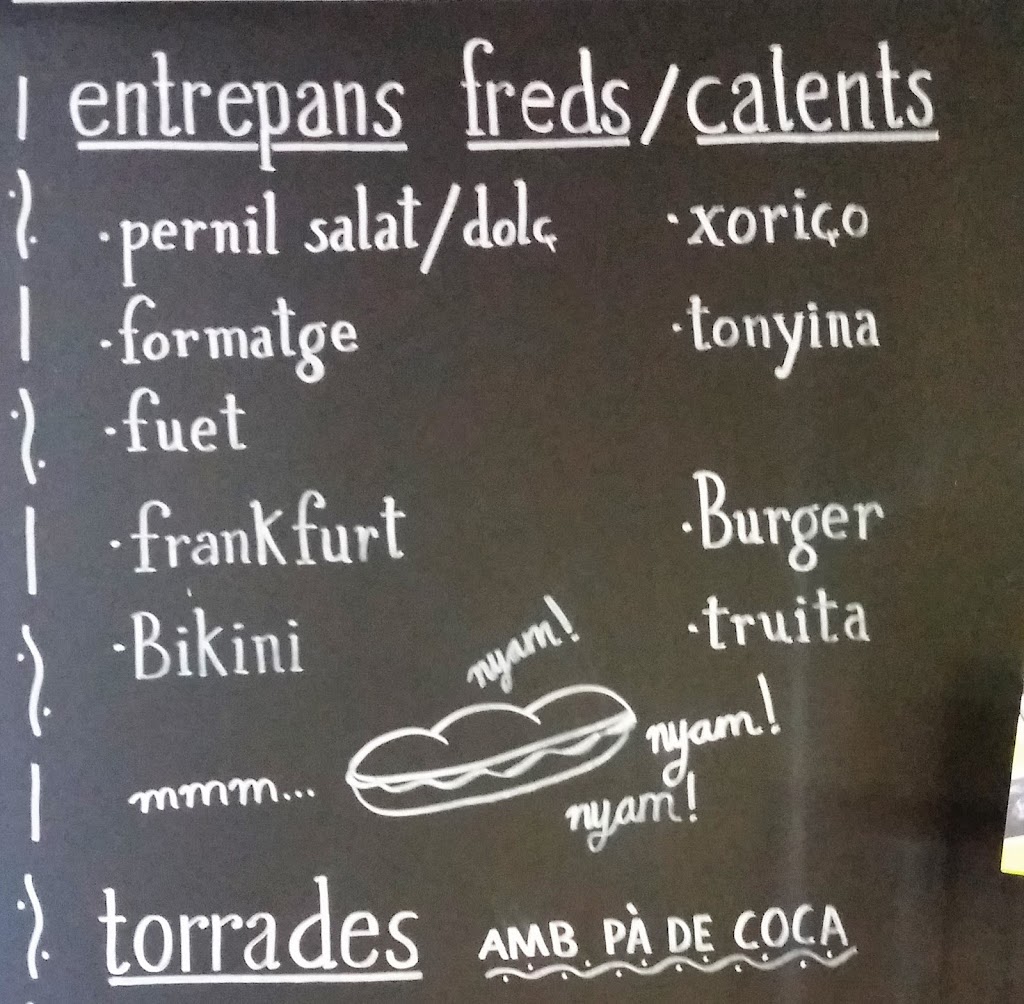 entrepans freds/calents
·pernil salat/dolç
·xoriço
·formatge
·tonyina
·fuet
·frankfurt
·Burger
·Bikini
·truita
nyam!
nyam!
mmm...
nyam!
torrades AMB PÀ DE COCA